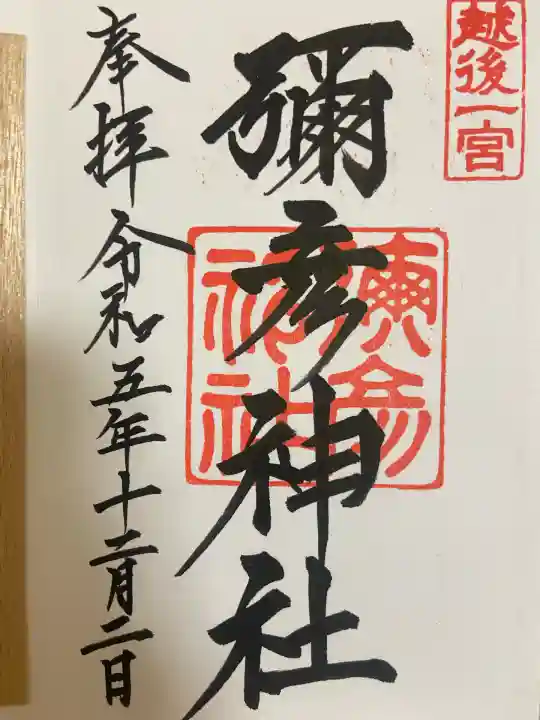 越後一宮
彌彦神社
奉拝 令和五年十二月二日